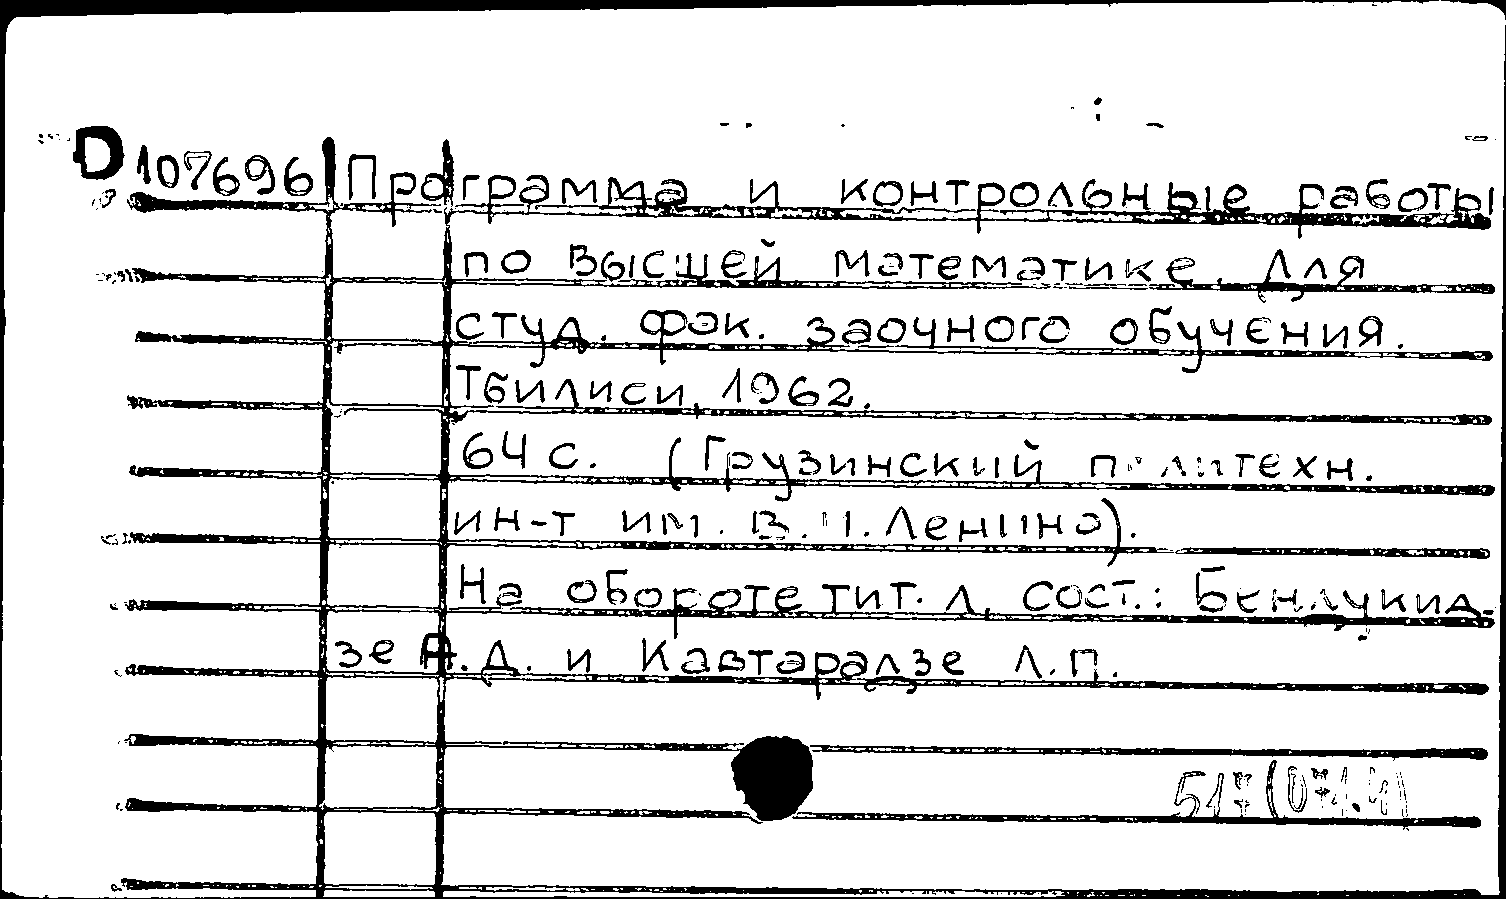 D 107696 Программа и контрольные работы
по высшей математике. Для
студ. фак. заочного обучения.
Тбилиси, 1962.
64 с. (Грузинский политехн.
ин-т им. В. И. Ленина).
На обороте тит. л. сост.: Бендукид-
зе А.Д. и Кавтарадзе Л.П.